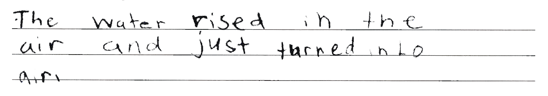 The water rised in the
air and just turned into
air.